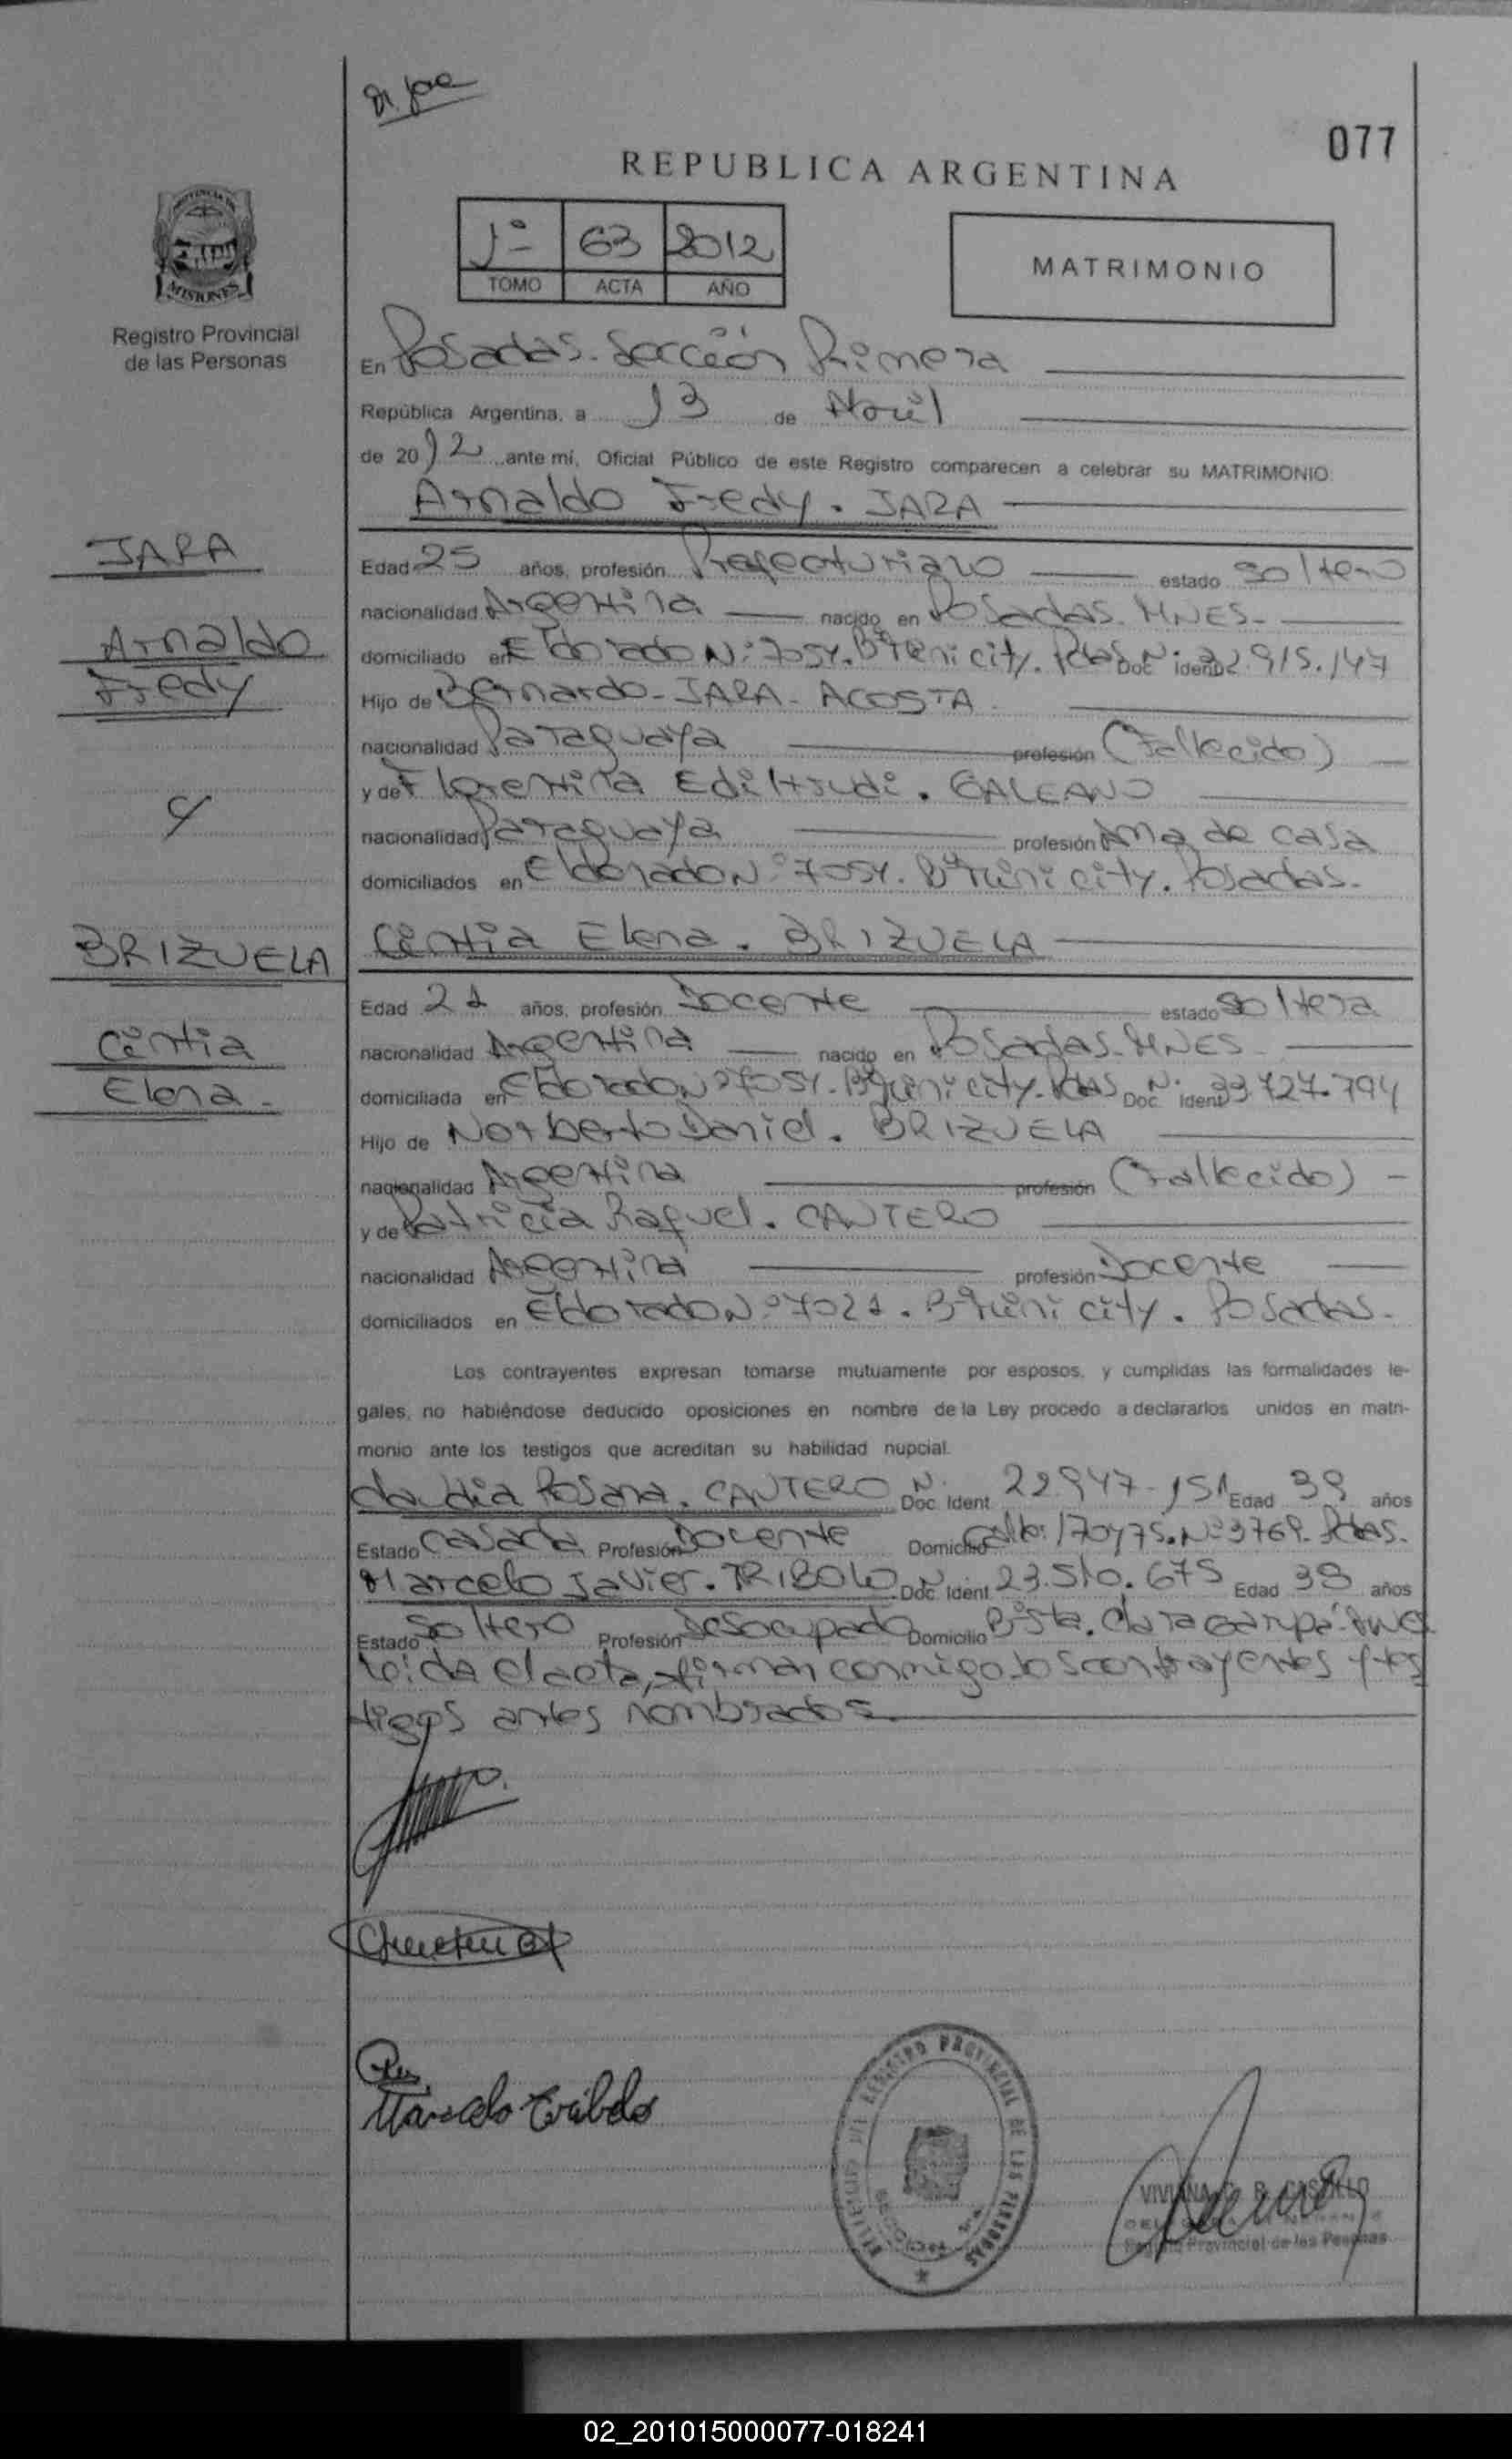 077
REPUBLICA ARGENTINA
PROVINCIA DE
MISIONES
Registro Provincial
de las Personas
1º 63 2012
TOMO ACTA AÑO
MATRIMONIO
En Posadas. Sección Primera
República Argentina, a 13 de Abril
de 2012 ante mí, Oficial Público de este Registro comparecen a celebrar su MATRIMONIO:
Arnaldo Fredy. JARA
JARA
Arnaldo
Fredy
y
BRIZUELA
Cintia
Elena.
Edad 25 años, profesión Prefecturiano estado soltero
nacionalidad Argentina nacido en Posadas. MNES.
domiciliado en Eldorado Nº 7054. Bº city. Pdas Doc. Ident. 32.915.147
Hijo de Bernardo - JARA - ACOSTA
nacionalidad Paraguaya profesión (Fallecido)
y de Florentina Ediltrudi. GALEANO
nacionalidad Paraguaya profesión Ama de casa
domiciliados en Eldorado Nº 7054. Bº city. Posadas.
Cintia Elena. BRIZUELA
Edad 21 años, profesión Docente estado soltera
nacionalidad Argentina nacido en Posadas. MNES
domiciliada en Eldorado Nº 7054. Bº city. Pdas Doc. Ident. 33.727.794
Hijo de Norberto Daniel. BRIZUELA
nacionalidad Argentina profesión (Fallecido)
y de Patricia Raquel. CANTERO
nacionalidad Argentina profesión Docente
domiciliados en Eldorado Nº 7021. Bº city. Posadas.
Los contrayentes expresan tomarse mutuamente por esposos, y cumplidas las formalidades le-
gales, no habiéndose deducido oposiciones en nombre de la Ley procedo a declararlos unidos en matri-
monio ante los testigos que acreditan su habilidad nupcial.
Claudia Rosana. CANTERO Nº Doc. Ident 22.947.151 Edad 39 años
Estado Casada Profesión Docente Domicilio Calle: 170 y 75. Nº 3769. Pdas.
Marcelo Javier. TRIBOLO Nº Doc. Ident 23.510.675 Edad 38 años
Estado Soltero Profesión Desocupado Domicilio Bº Sta. Clara
leida el acta, firman conmigo los contrayentes y tes
tigos antes nombrados.
Marcelo Tribolo
REGISTRO PROVINCIAL DE LAS PERSONAS
VIVIANA B. CASTILLO
Registro Provincial de las Personas
02_201015000077-018241